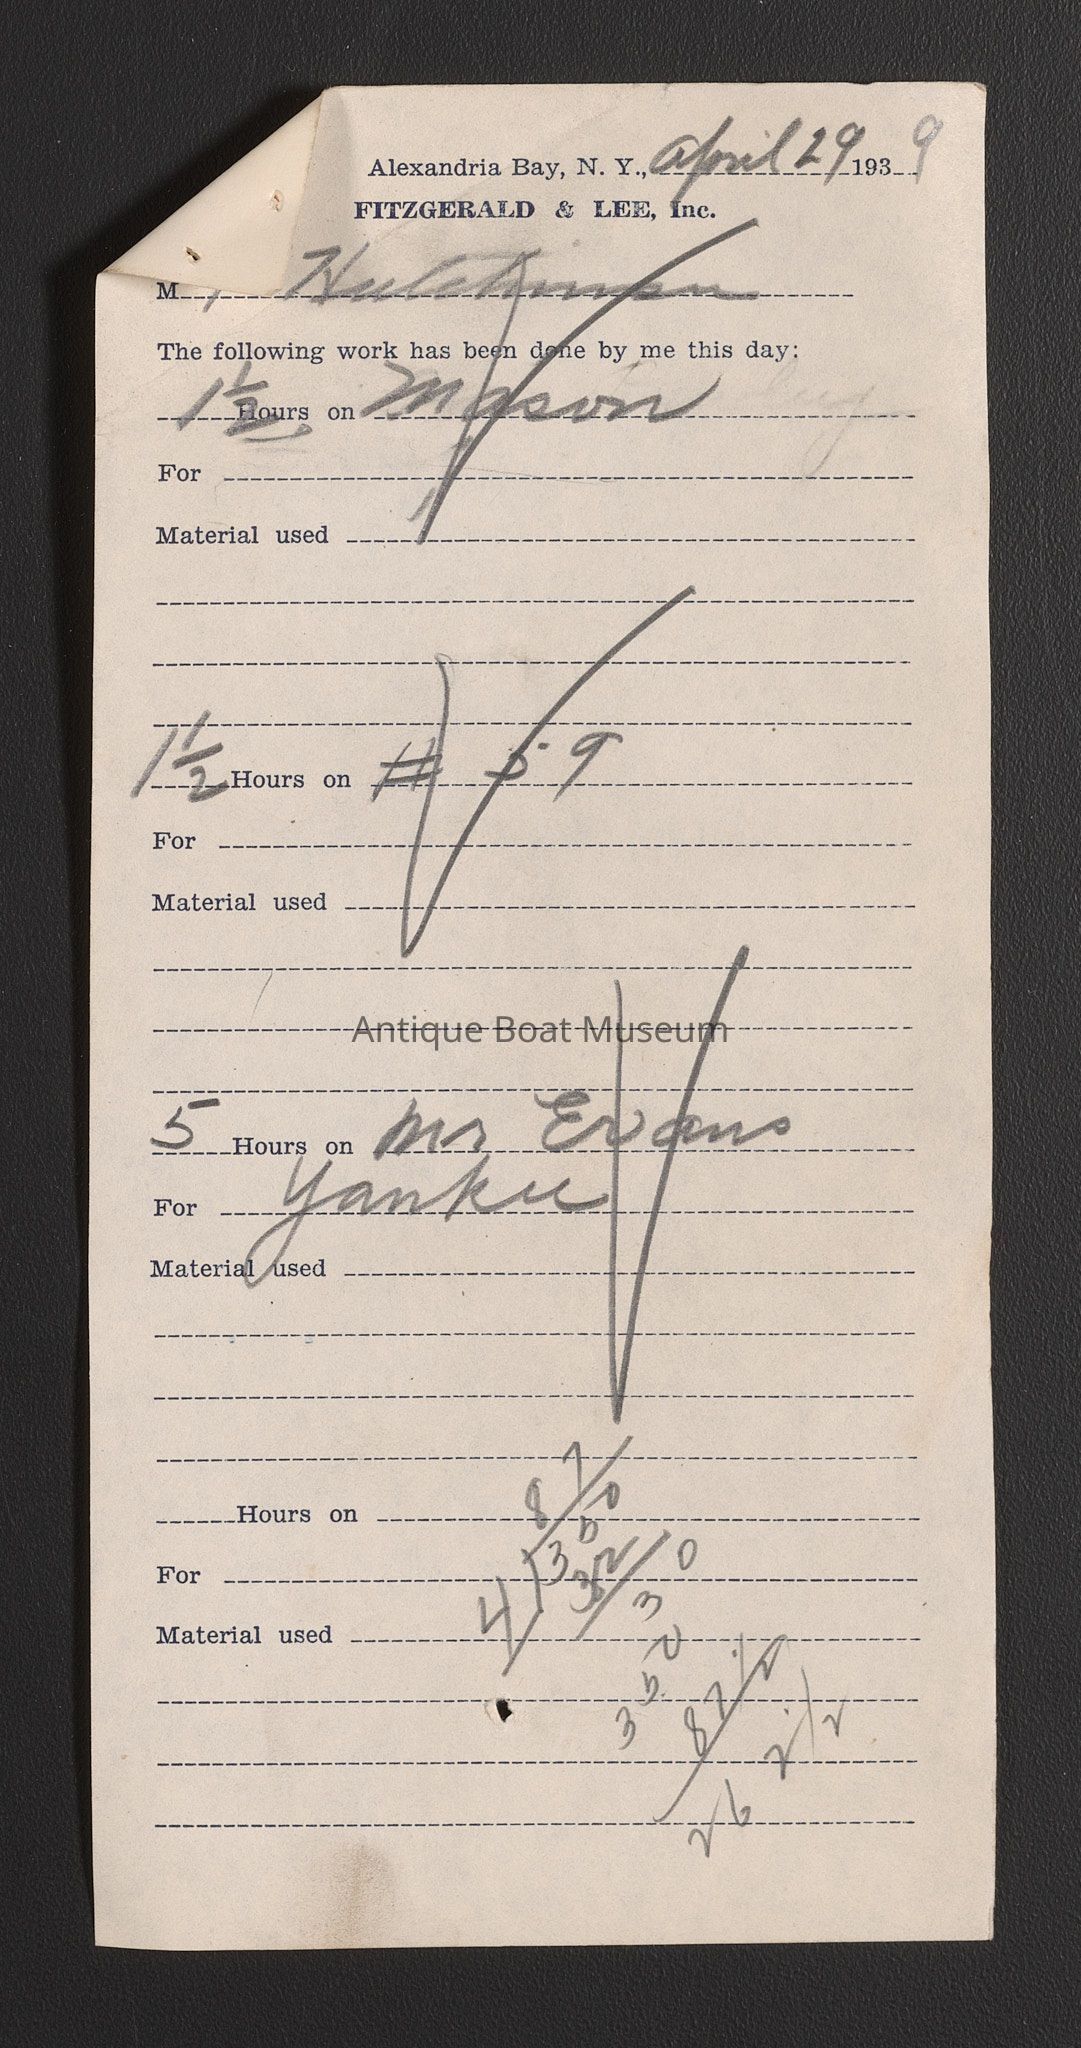 Alexandria Bay, N. Y., April 29 1939
FITZGERALD & LEE, Inc.
M. Hutchinson
The following work has been done by me this day:
1 1/2 Hours on Mason
For
Material used
1 1/2 Hours on # 59
For
Material used
Antique Boat Museum
5 Hours on Mr Evans
For Yankee
Material used
Hours on
For
Material used